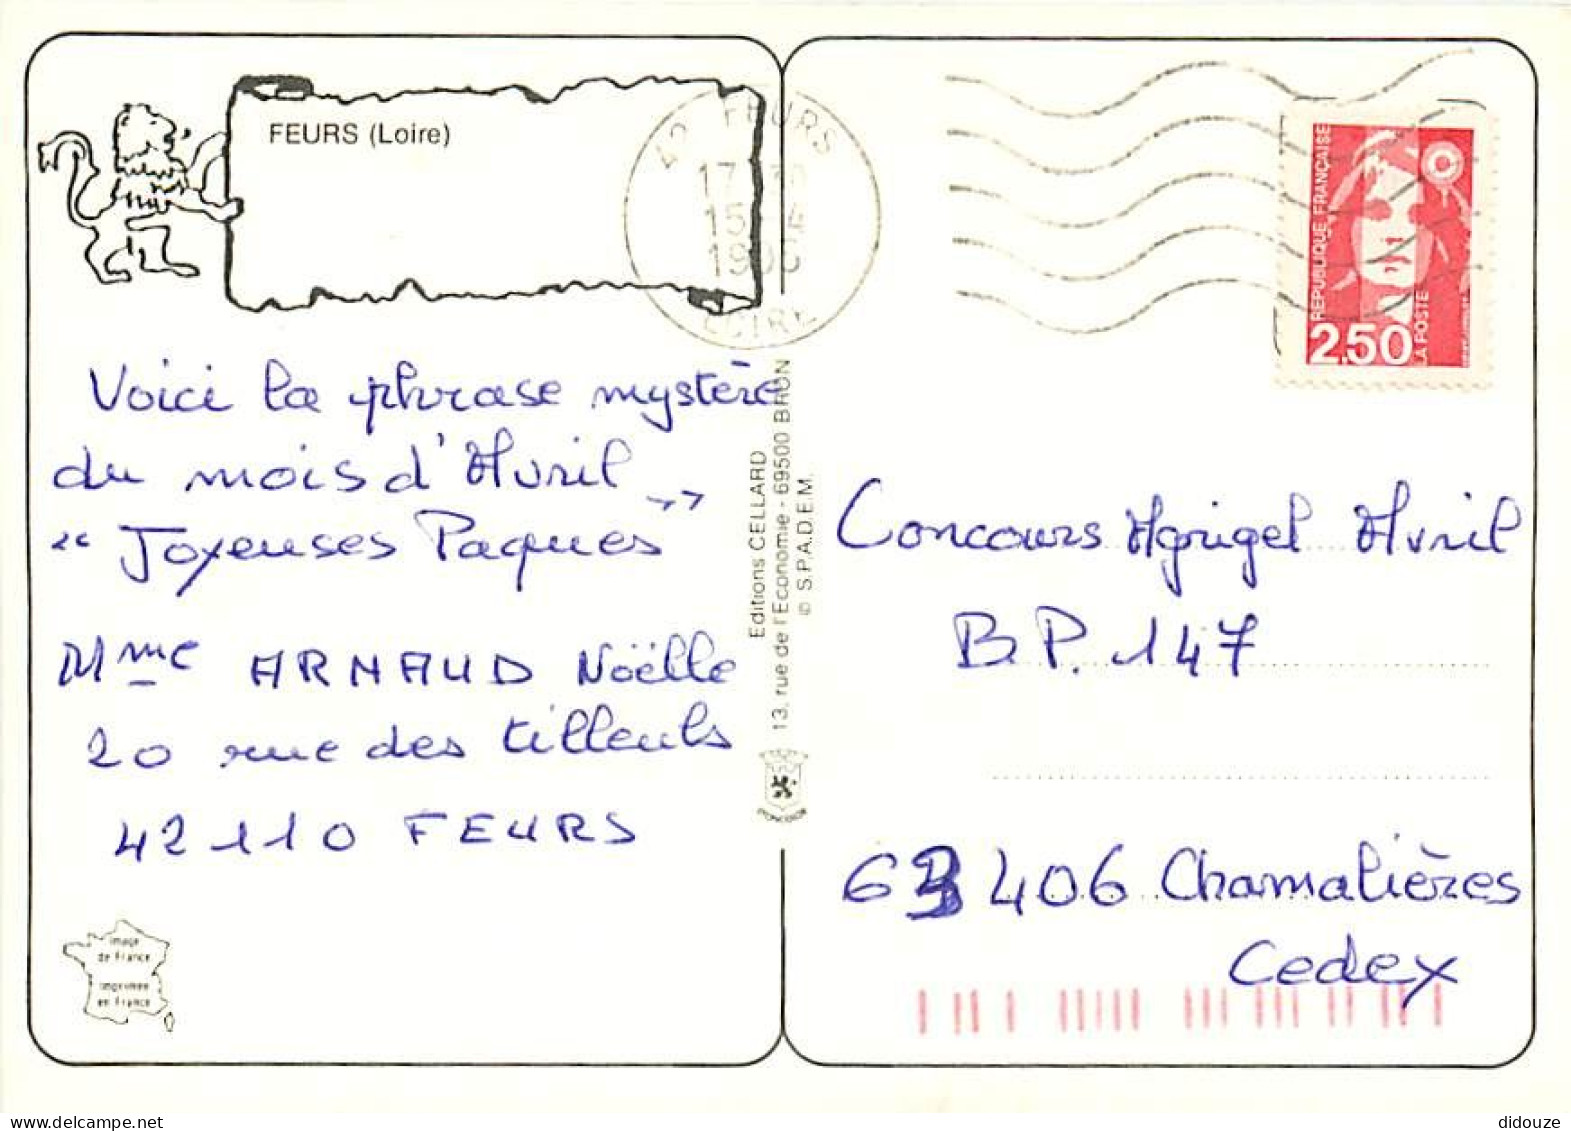 FEURS (Loire)
42 FEURS
15
LOIRE
RÉPUBLIQUE FRANÇAISE
LA POSTE
2,50
Voici la phrase mystère
du mois d'Avril
“ Joyeuses Paques ”
Mme ARNAUD Noëlle
20 rue des tilleuls
42110 FEURS
Editions CELLARD
13, rue de l'Economie - 69500 BRON
© S.P.A.D.E.M.
Concours Agrigel Avril
B.P. 147
63 406 Chamalières
Cedex
image
de France
imprimée
en France
didouze